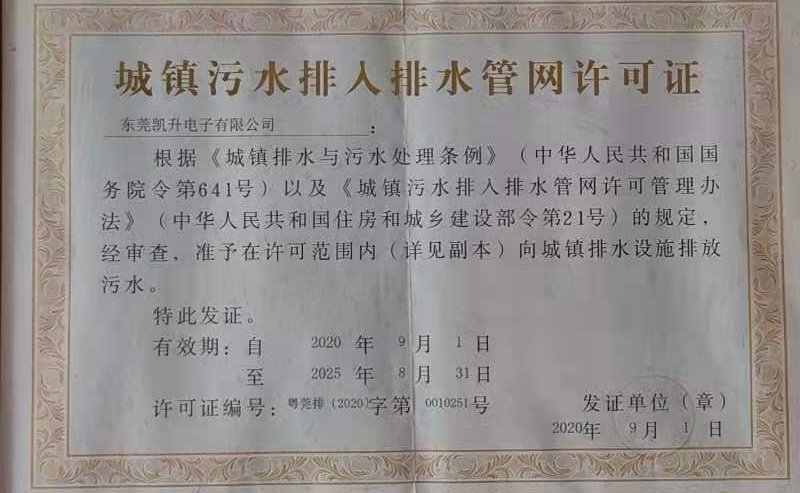 城镇污水排入排水管网许可证
东莞凯升电子有限公司：
根据《城镇排水与污水处理条例》（中华人民共和国国
务院令第641号）以及《城镇污水排入排水管网许可管理办
法》（中华人民共和国住房和城乡建设部令第21号）的规定，
经审查，准予在许可范围内（详见副本）向城镇排水设施排放
污水。
特此发证。
有效期：自 2020 年 9 月 1 日
至 2025 年 8 月 31 日
许可证编号：粤莞排（2020）字第 0010251 号
发证单位（章）
2020年 9 月 1 日